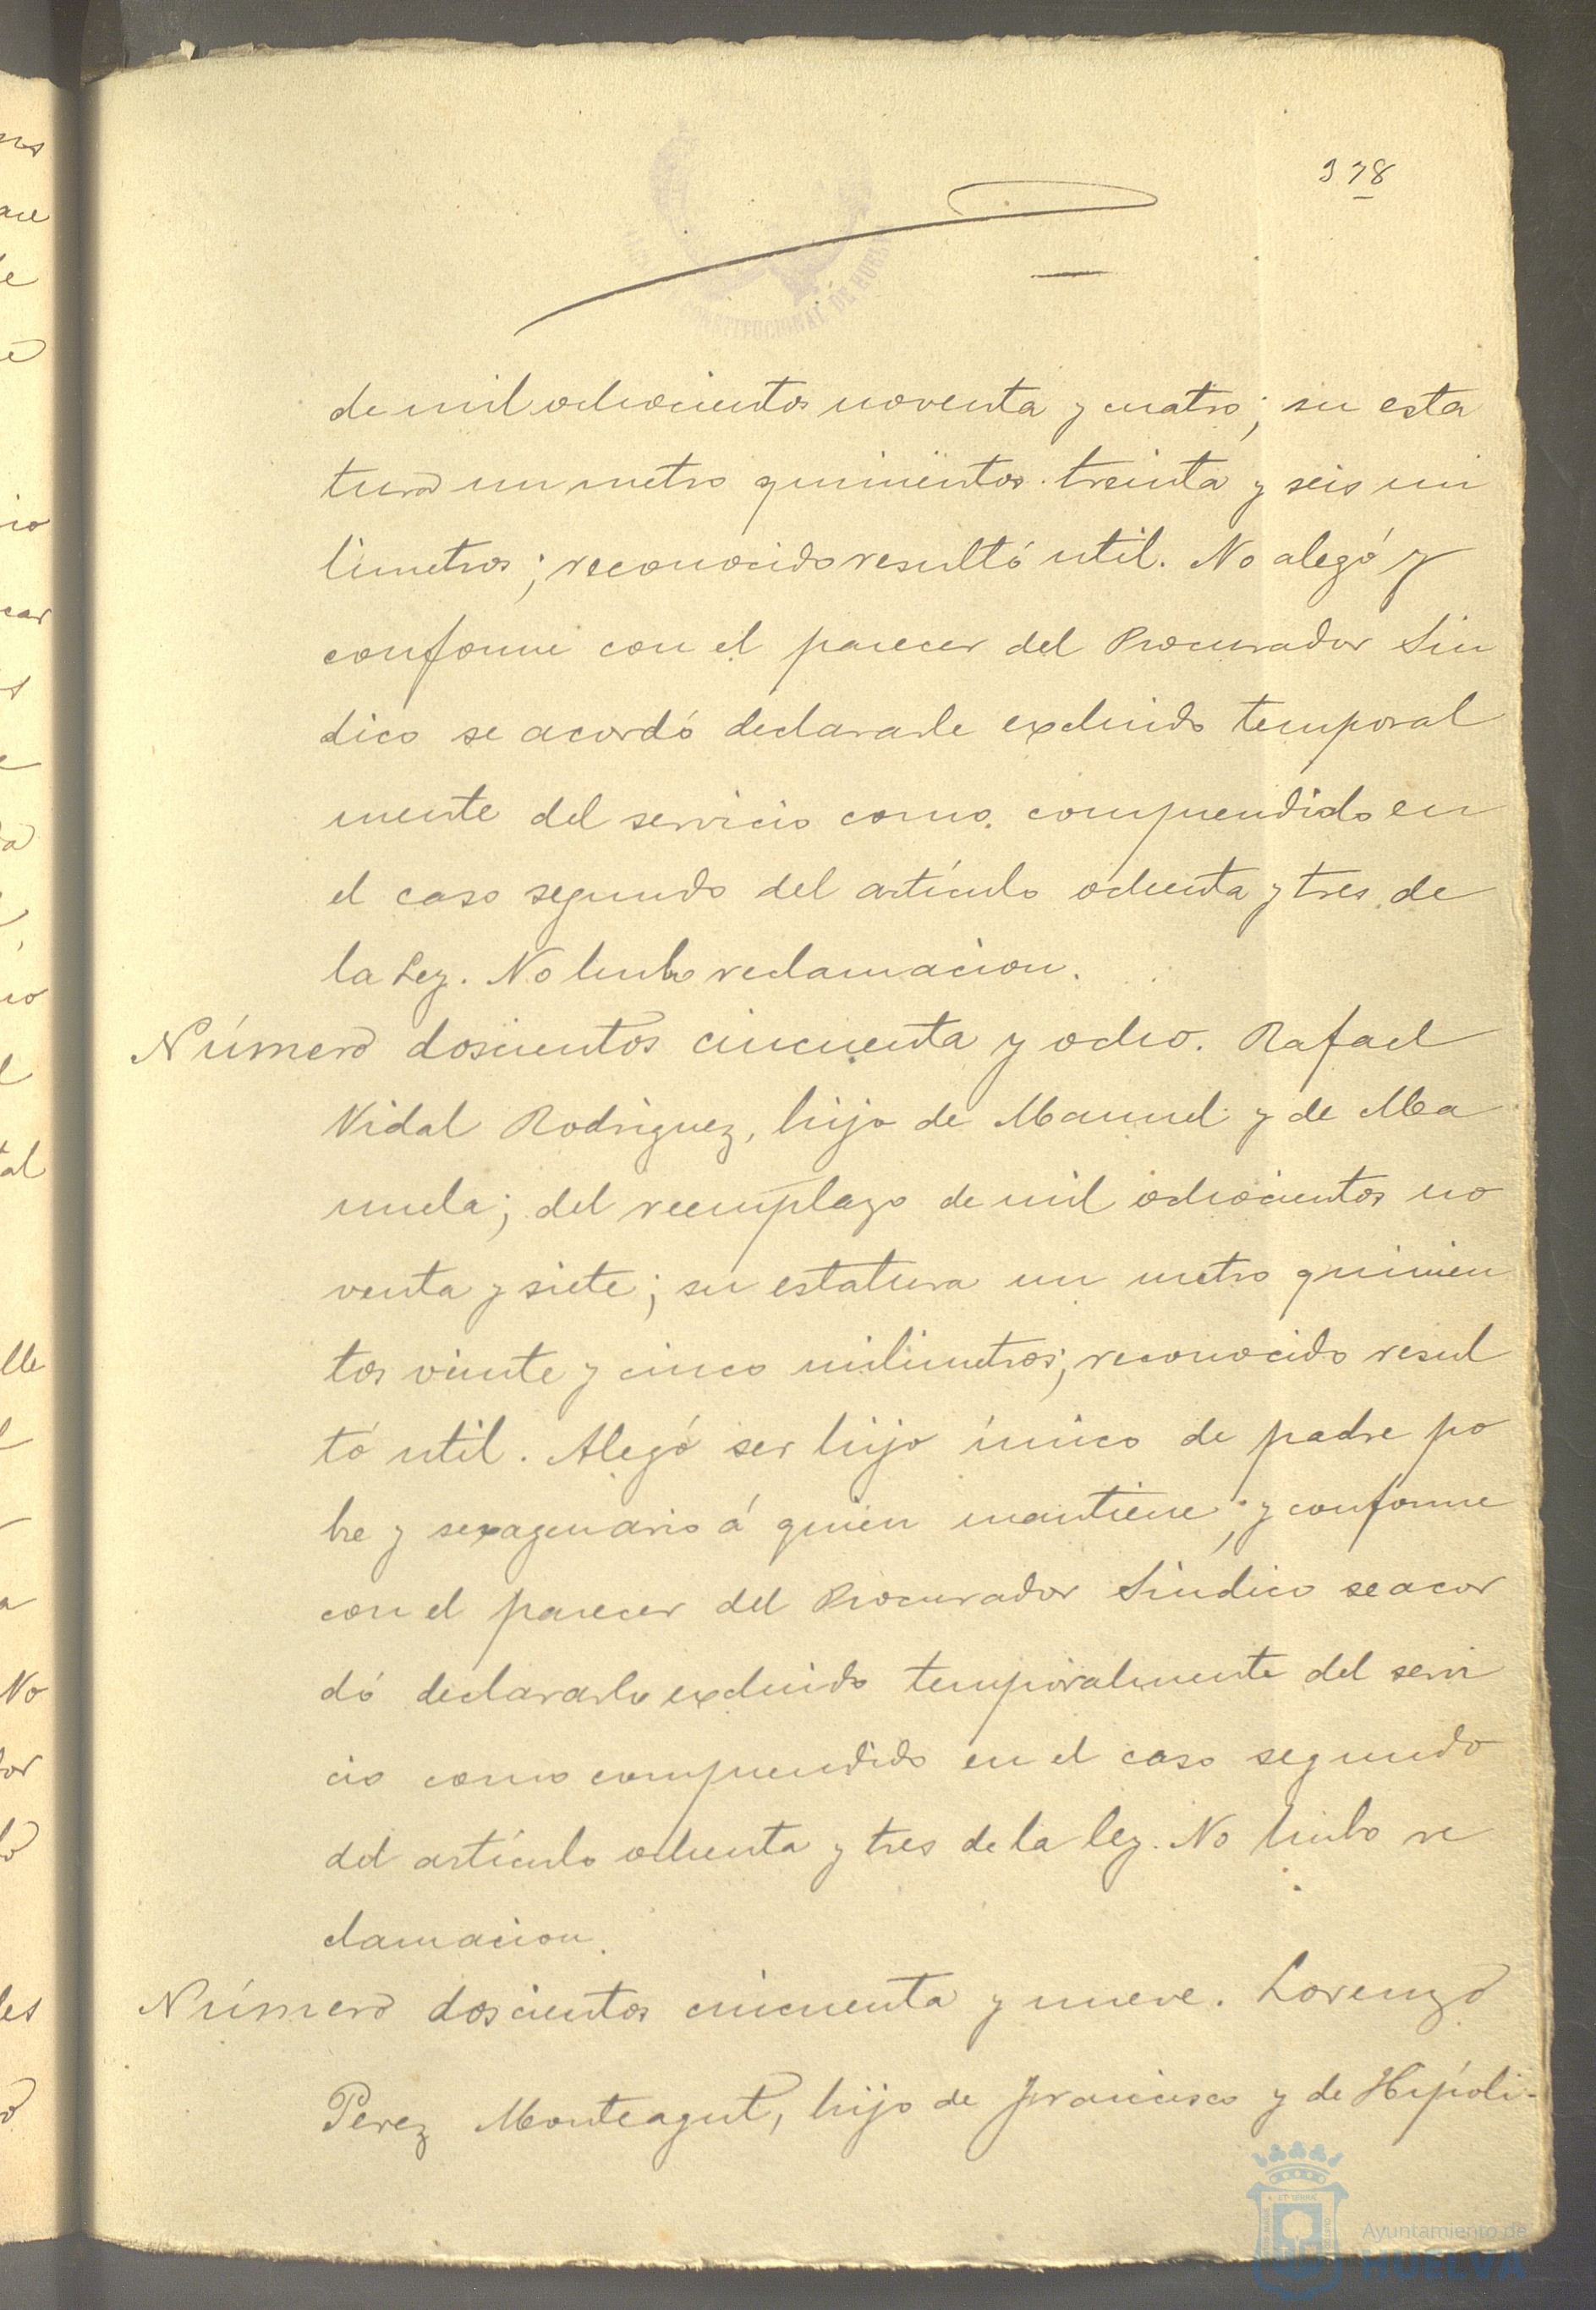 378
CONSTITUCIONAL DE HUELVA
de mil ochocientos noventa y cuatro; su esta
tura un metro quinientos treinta y seis mi
límetros; reconocido resultó util. No alegó y
conforme con el parecer del Procurador Sin
dico se acordó declararle excluido temporal
mente del servicio como comprendido en
el caso segundo del artículo ochenta y tres de
la Ley. No hubo reclamacion.
Número doscientos cincuenta y ocho. Rafael
Vidal Rodriguez, hijo de Manuel y de Ma
nuela; del reemplazo de mil ochocientos no
venta y siete; su estatura un metro quinien
tos veinte y cinco milimetros; reconocido resul
tó util. Alegó ser hijo único de padre po
bre y sexagenario á quien mantiene; y conforme
con el parecer del Procurador Sindico se acor
dó declararle excluido temporalmente del servi
cio como comprendido en el caso segundo
del artículo ochenta y tres de la ley. No hubo re
clamacion.
Número doscientos cincuenta y nueve. Lorenzo
Perez Monteagut, hijo de Francisco y de Hipóli-
Ayuntamiento de
HUELVA